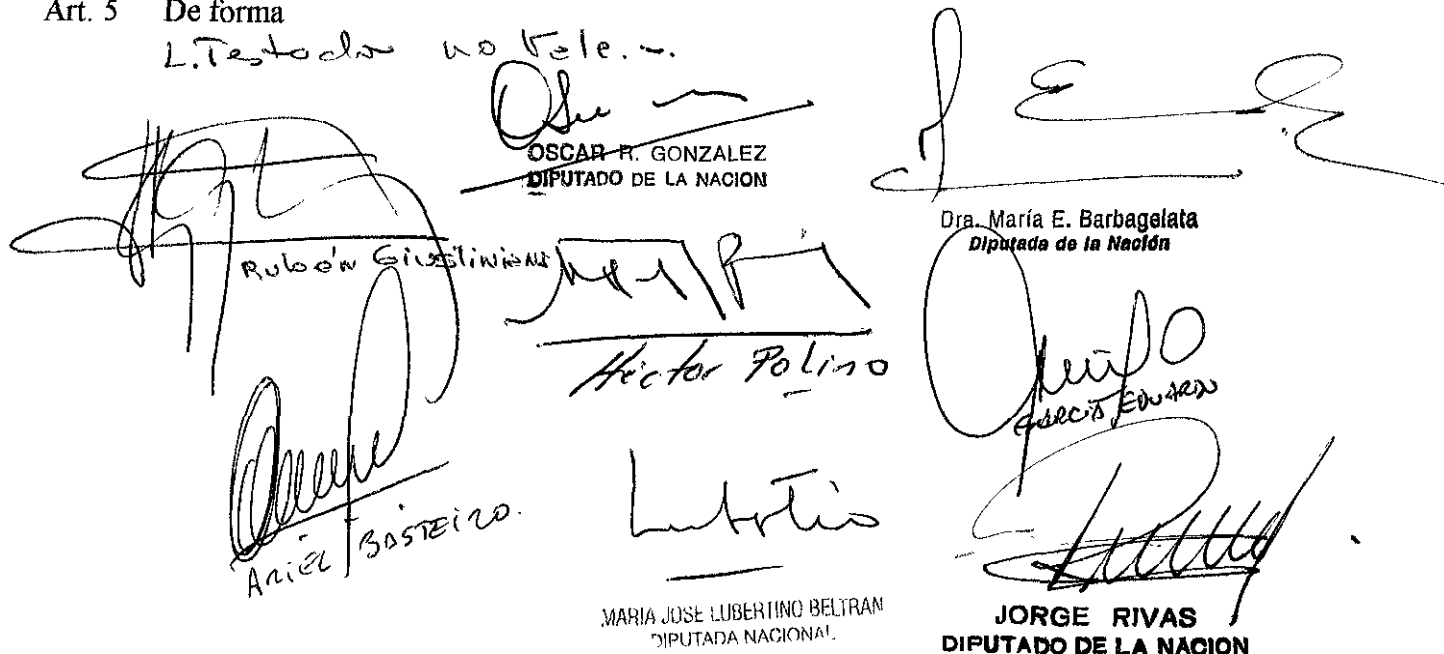 Art. 5 De forma
L. Testado no Vale.-
OSCAR R. GONZALEZ
DIPUTADO DE LA NACION
Dra. María E. Barbagelata
Diputada de la Nación
Rubén Giustiniani
Héctor Polino
GARCIA, EDUARDO
ARIEL BASTEIRO.
Lubertino
MARIA JOSE LUBERTINO BELTRAN
DIPUTADA NACIONAL
JORGE RIVAS
DIPUTADO DE LA NACION